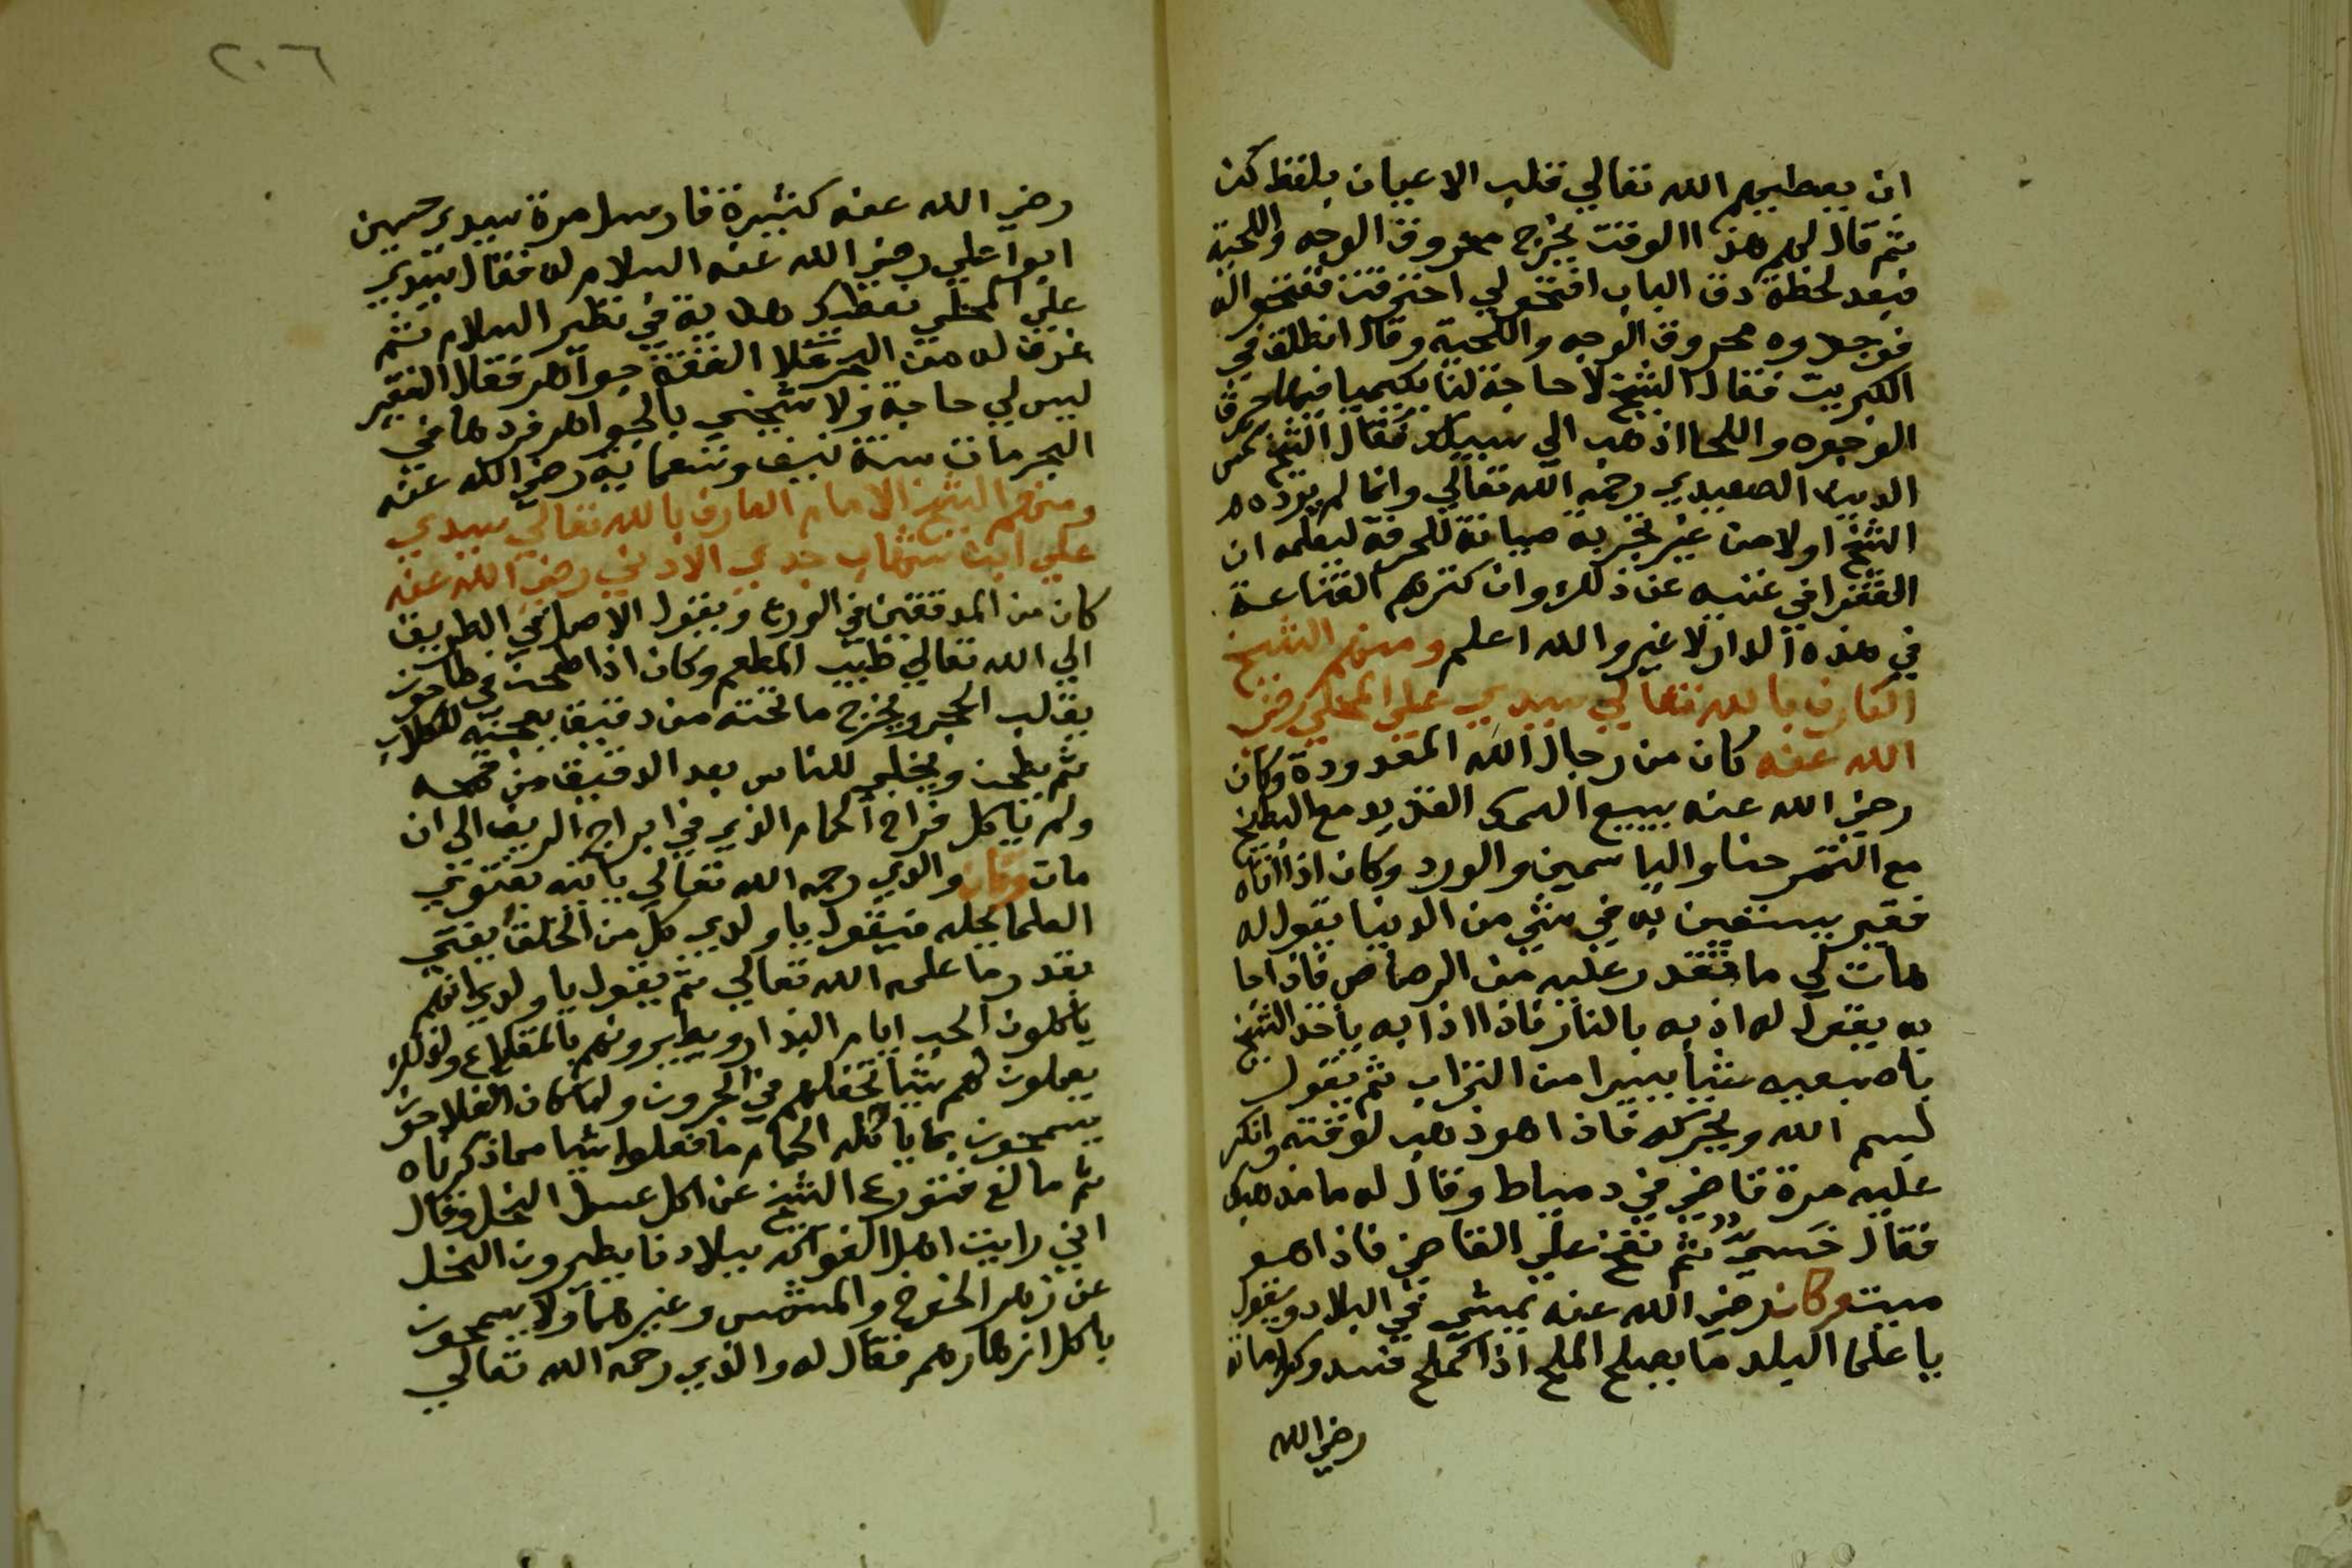 ان يعطيهم الله تعالي قلب الاعيان بلفظ كن
ثم قال لهم هذا الوقت يخرج محروق الوجه واللحية
فبعد لحظة دق الباب افتحو لي احترقت ففتحواله
فوجدوه محروق الوجه واللحية وقال انطلق في
الكبريت فقال الشيخ لا حاجة لنا بكيميا فيها حرق
الوجوه واللحا اذهب الي سبيلك فقال الشيخ شمس
الدين الصعيدي رحمه الله تعالي وانما لم يرده
الشيخ اولا من غير تجربة صيانة للحرفة ليعلمه ان
الفقرا في غنيه عن ذلك وان كنزهم القناعة
في هذه الدار لا غير والله اعلم ومنهم الشيخ
العارف بالله تعالي سيدي علي المحلي رضي
الله عنه كان من رجال الله المعدودة وكان
رضي الله عنه يبيع السمك القديد مع البطيخ
مع التمر حنا والياسمين والورد وكان اذا اتاه
فقير يستعين به في شي من الدنيا يقول له
هات لي ما تقدر عليه من الرصاص فاذا جا
به يقول له اذبه بالنار فاذا اذابه ياخذ الشيخ
باصبعيه شيا يسيرا من التراب ثم يقول
بسم الله ويحركه فاذا هو ذهب لوقته وانكر
عليه مرة قاضي في دمياط وقال له ما مذهبك
فقال حنشي ثم نفخ علي القاضي فاذا هو
ميت وكان رضي الله عنه يمشي في البلاد ويقول
يا علما البلد ما يصلح الملح اذا الملح فسد وكراماته
رضي الله
٢٠٦
رضي الله عنه كثيرة فارسل مرة سيدي حسين
ابوا علي رضي الله عنه السلام له فقال سيدي
علي المحلي نعطيك هدية في نظير السلام ثم
غرف له من البحر ملا القفة جواهر فقال الفقير
ليس لي حاجة ولا شيخي بالجواهر فردها في
البحر مات سنة نيف وتسعماية رضي الله عنه
ومنهم الشيخ الامام العارف بالله تعالي سيدي
علي ابن شهاب جدي الادني رضي الله عنه
كان من المدققين في الورع ويقول الاصل في الطريق
الي الله تعالي طيب المطعم وكان اذا طحن في طاحون
يقلب الحجر ويخرج ما تحته من دقيق يعجنه للكلاب
ثم يطحن ويخلي للناس بعد الدقيق من قمحه
ولم ياكل فراخ الحمام الذي في ابراج الريف الي ان
مات وكان والدي رحمه الله تعالي ياتيه بفتوي
العلما بحله فيقول يا ولدي كل من الخلق يفتي
بقدر ما علمه الله تعالي ثم يقول يا ولدي انهم
ياكلون الحب ايام البذار ويطيرونهم بالمقلاع ولذلك
يعملون لهم شيا تجفلهم في الجرون ولو كان الفلاحون
يسمحون بما ياكله الحمام ما فعلوا شيا مما ذكرناه
ثم بالغ فتورع الشيخ عن اكل عسل النحل وقال
اني رايت اهل الفواكه ببلادنا يطيرون النحل
عن زهر الخوخ والمشمش وغيرهما ولا يسمحون
باكل ازهارهم فقال له والدي رحمه الله تعالي